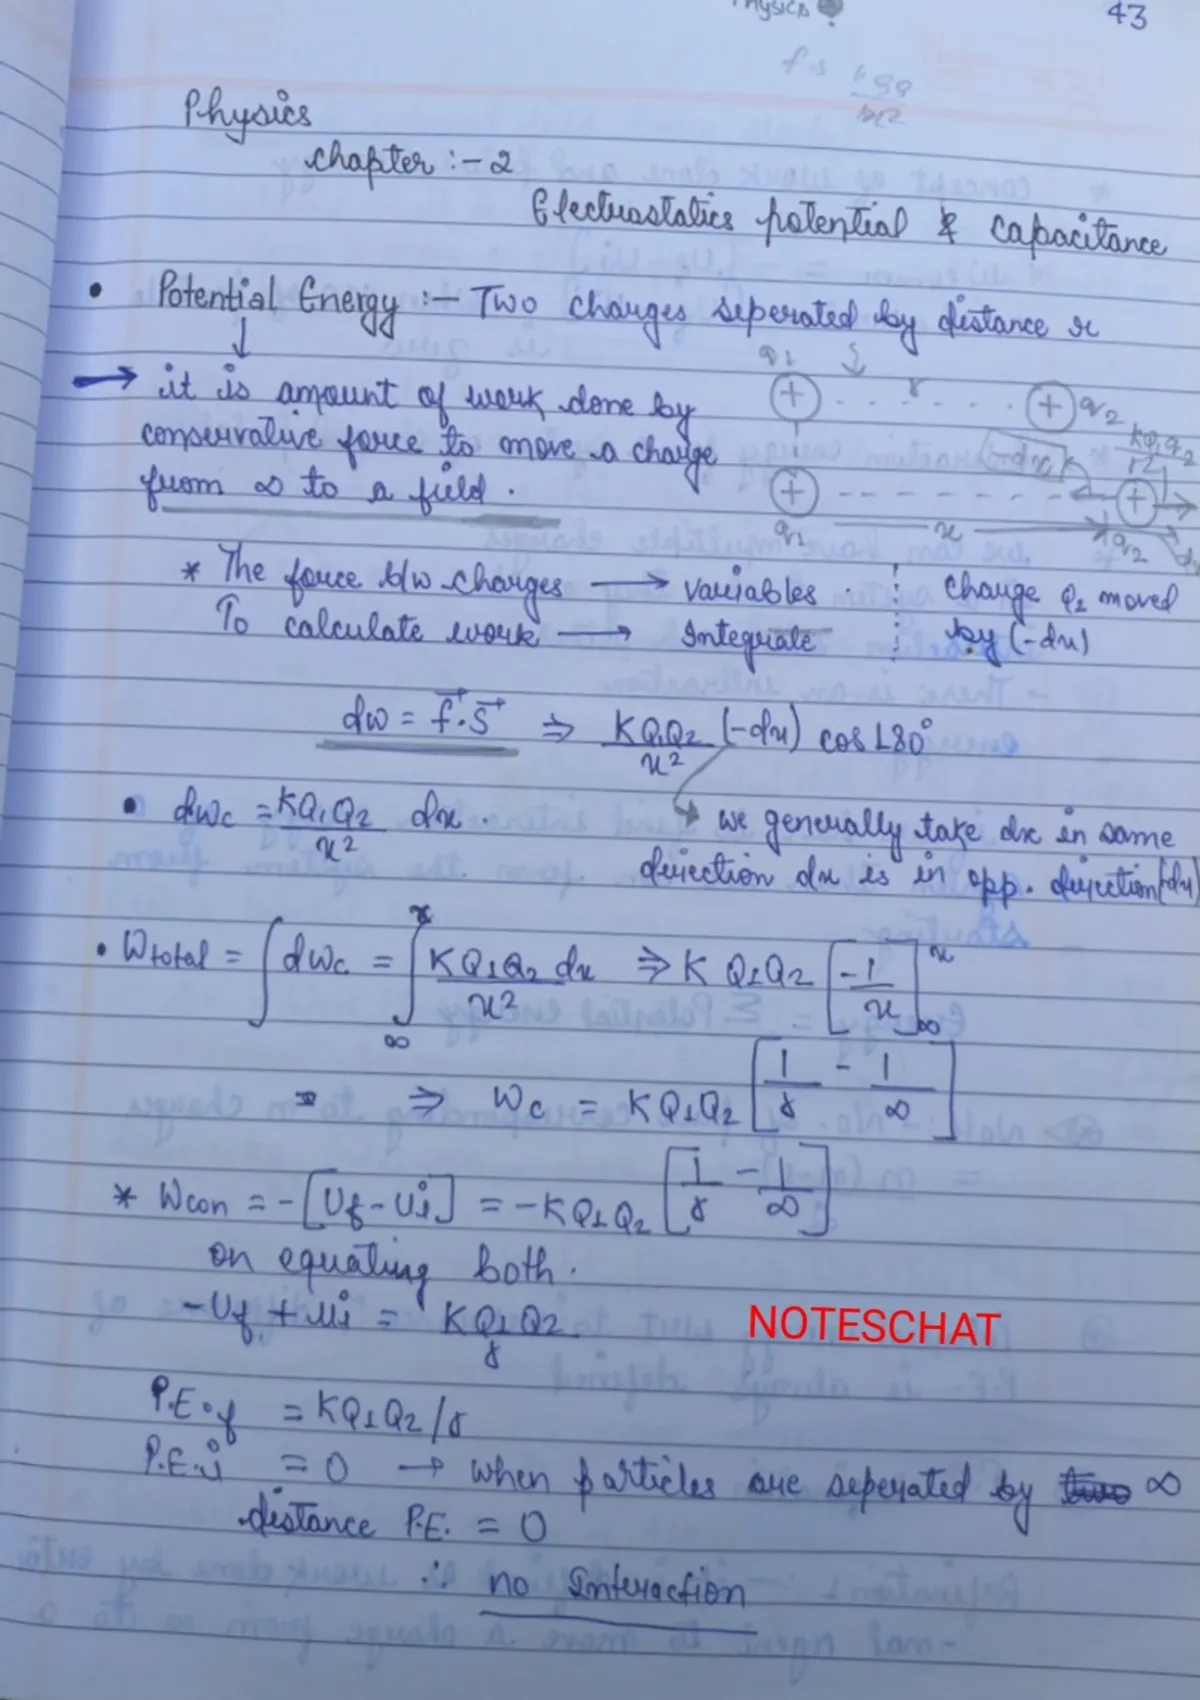 PHYSICS
43
Physics
chapter :- 2
Electrostatics potential & capacitance
• Potential Energy :- Two charges seperated by distance r
→ it is amount of work done by
conservative force to move a charge
from ∞ to a field.
q1 + r + q2
KQ1q2
r2
+ +
q1 x q2 dx
* The force b/w charges → variables.
To calculate work → Integrate
charge Q2 moved
by (-dx)
dw = f⃗.S⃗ ⇒ KQ1Q2/x² (-dx) cos 180°
• dwc = KQ1Q2/x² dx.
we generally take dx in same
direction dx is in opp. direction (-dx)
• Wtotal = ∫dwc = ∫∞^x KQ1Q2 dx/x² ⇒ K Q1Q2 [-1/x]∞^x
⇒ ⇒ Wc = KQ1Q2 [1/r - 1/∞]
* Wcon = -[Uf-Ui] = -KQ1Q2 [1/r - 1/∞]
on equating both.
-Uf + Ui = KQ1Q2/r
NOTESCHAT
P.E.f = KQ1Q2/r
P.E.i = 0 → when particles are seperated by ∞
distance P.E. = 0
∴ no Interaction